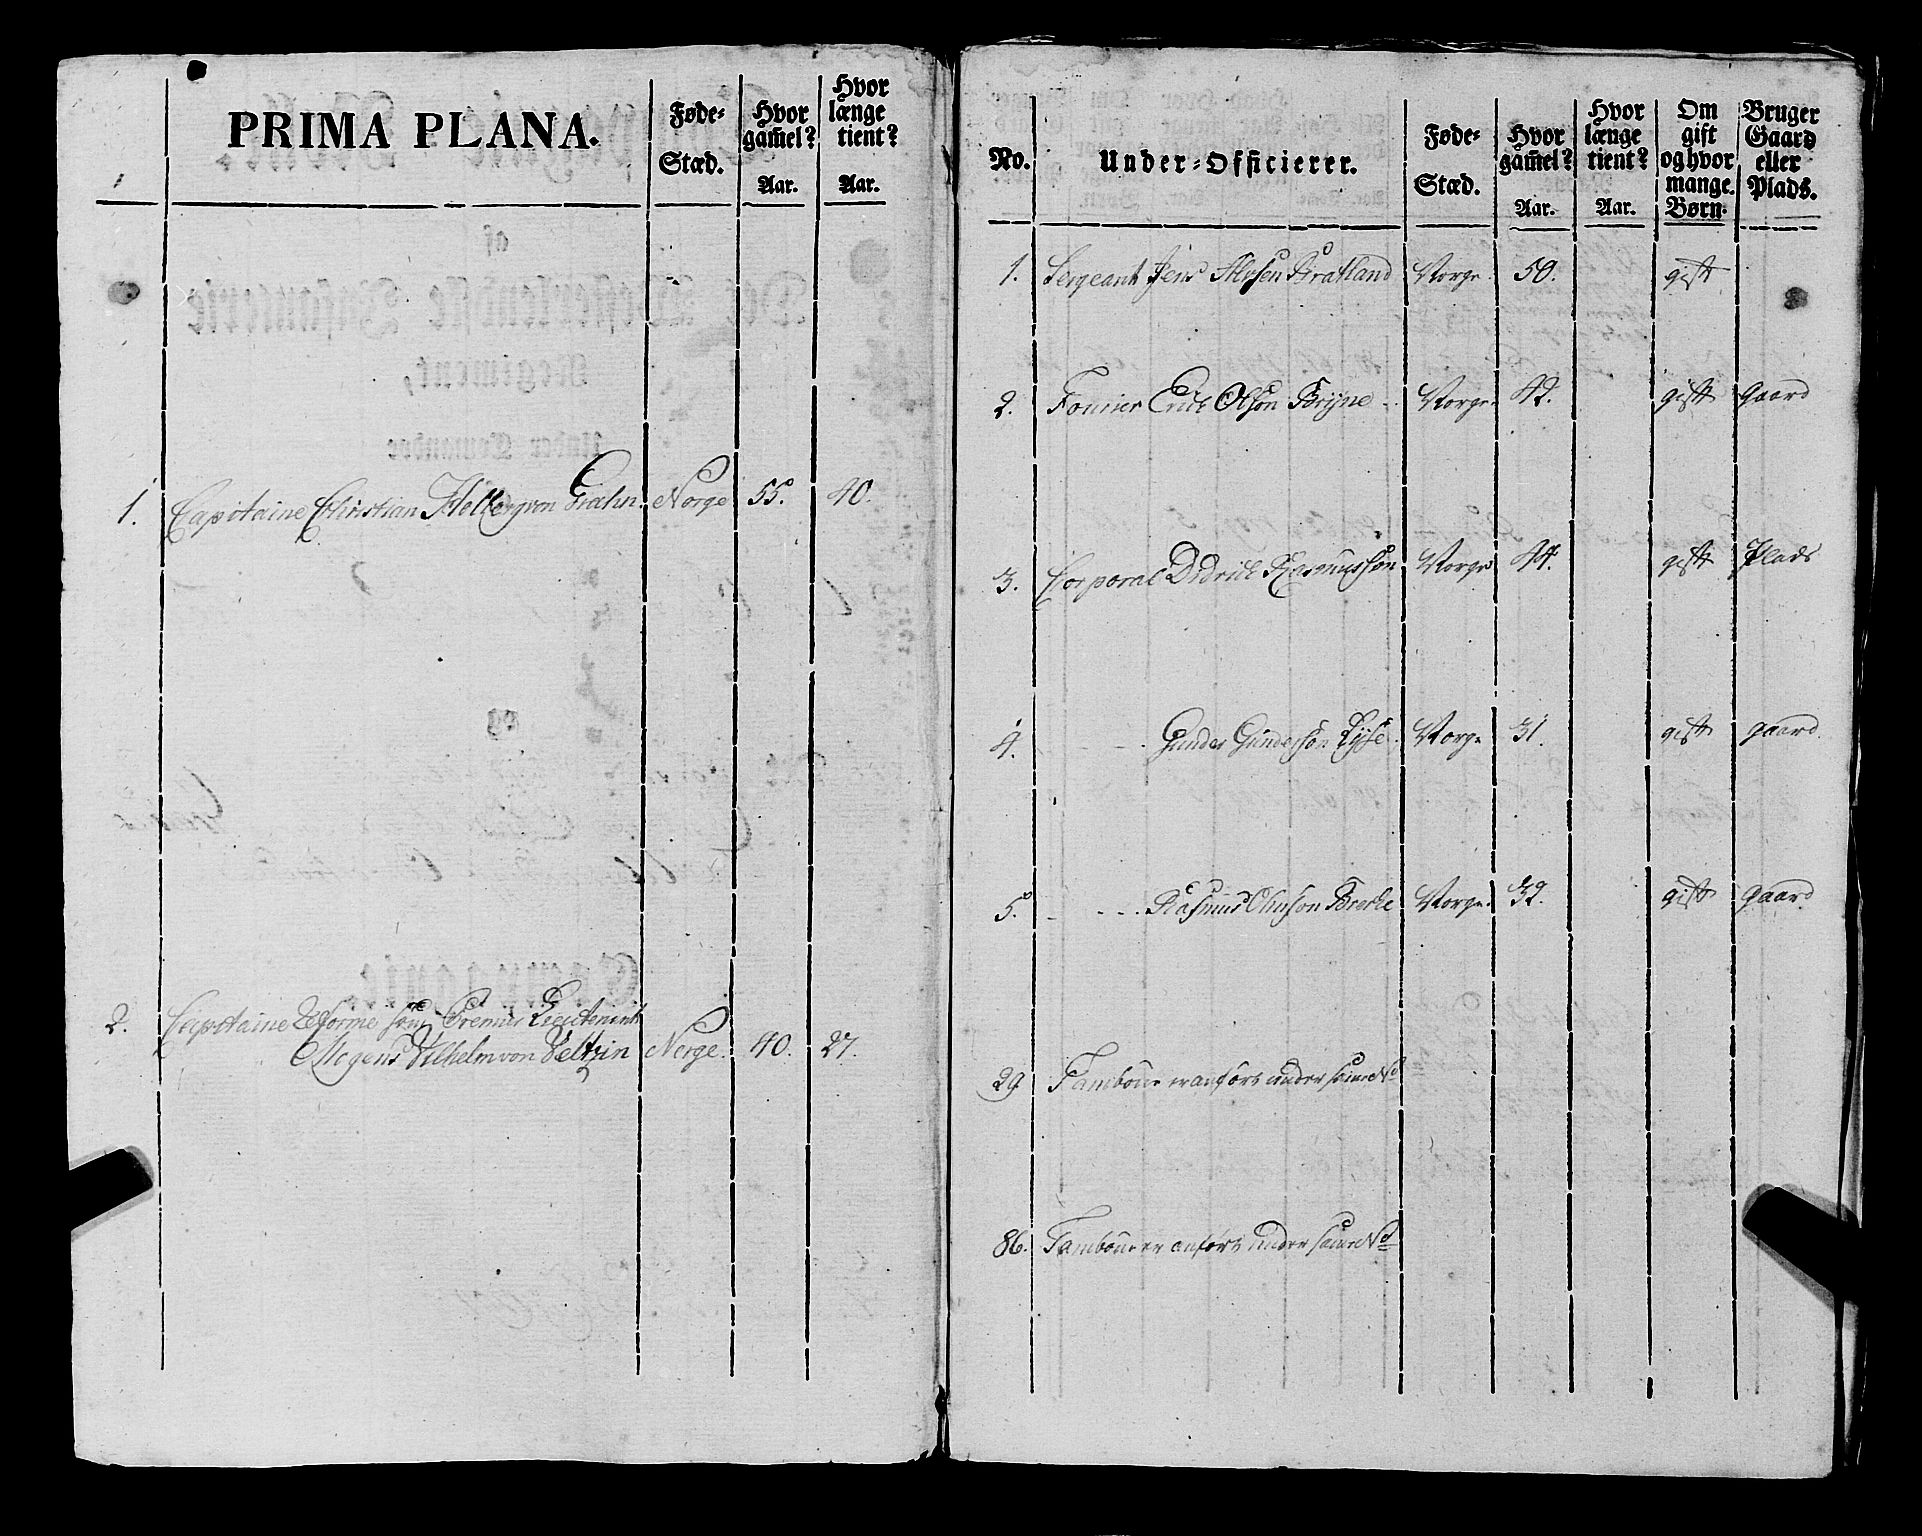 PRIMA PLANA.
Føde-
Stæd.
Hvor
gam̃el?
Aar.
Hvor
længe
tient?
Aar.
1. Capitaine Christian von Grahn. Norge 55. 40.
2. Capitaine Reforme som Premier Lieutenint
Mogens Vilhelm von Veltzin Norge. 40. 27.
No.
Under-Officierer.
Føde-
Stæd.
Hvor
gam̃el?
Aar.
Hvor
længe
tient?
Aar.
Om
gift
og hvor
mange.
Børn.
Bruger
Gaard
eller
Plads.
1. Sergeant Jens Bratland Norge 50. gift
2. Fourier Erich Olsøn Bryne Norge 42. gift gaard
3. Corporal Didrich Rasmussøn Norge 44. gift Plads
4. Gunder Gundersøn Lyse Norge 31. gift gaard
5. Rasmus Olussøn Brecke Norge. 32. gift gaard
29 Tambour er anført under samme No
86. Tambour er anført under samme No